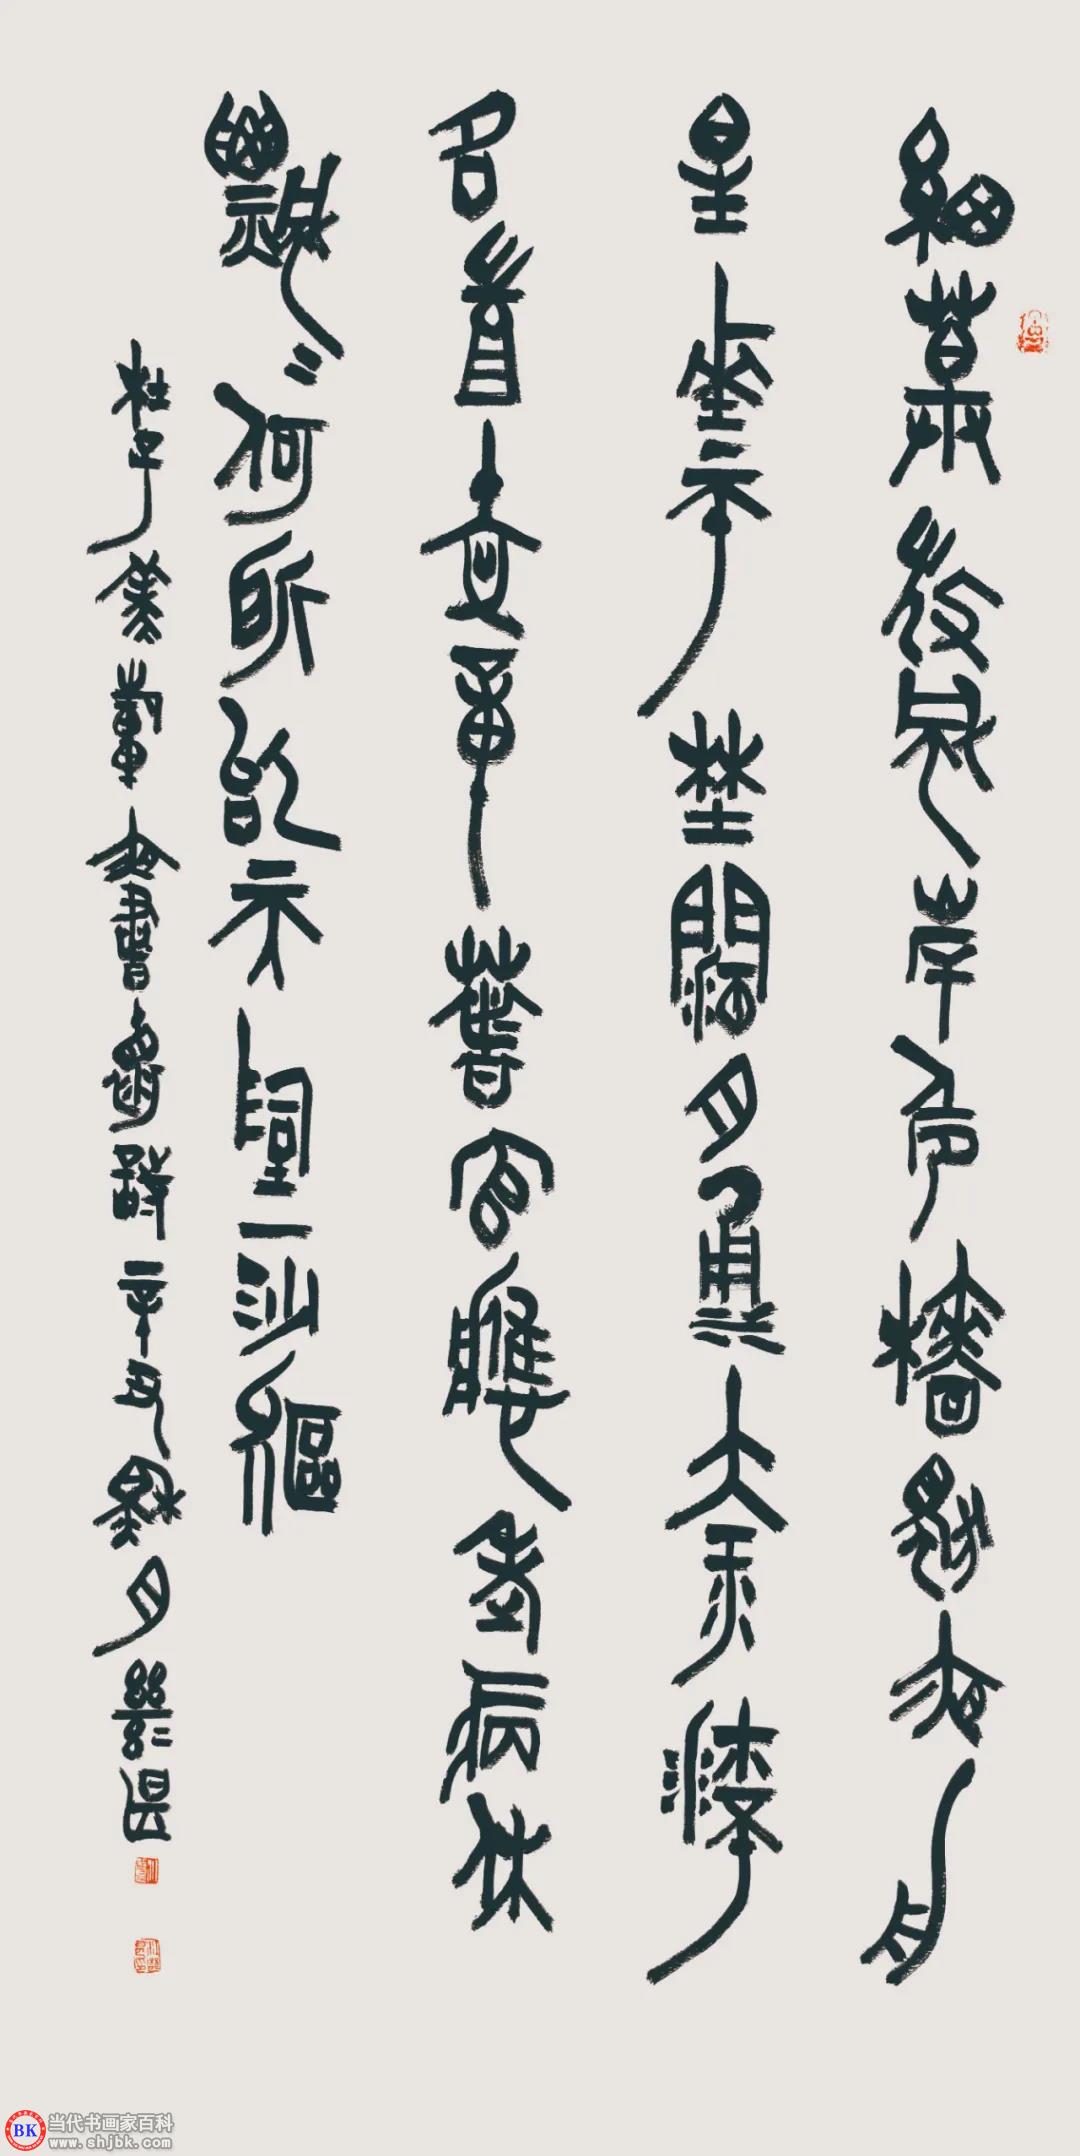 細草微風岸危檣獨夜舟
星垂平野闊月湧大江流
名豈文章著官應老病休
飄〻何所似天地一沙鷗
杜子美旅夜書懷詩辛丑秋月
BK 当代书画家百科
www.shjbk.com